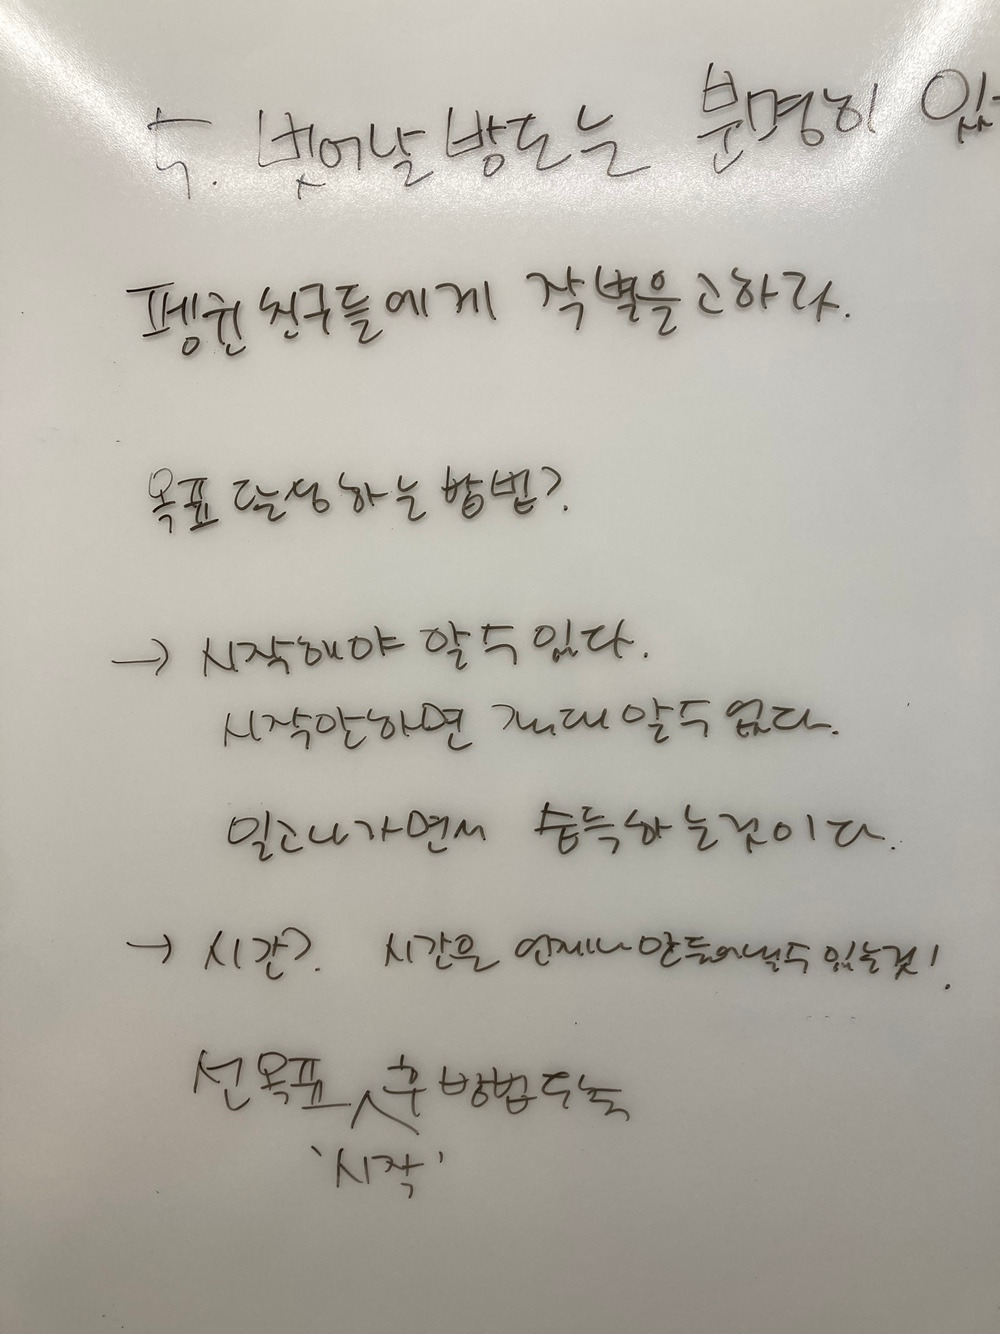 두. 벗어날 방도는 분명히 있
펭귄 친구들에게 작별을 고하라.
목표 달성하는 방법?
→ 시작해야 알 수 있다.
시작안하면 절대 알 수 없다.
일구나가면서 습득하는것이다.
→ 시간? 시간은 언제나 만들어낼수 있는것!
선목표 후 방법
'시작'